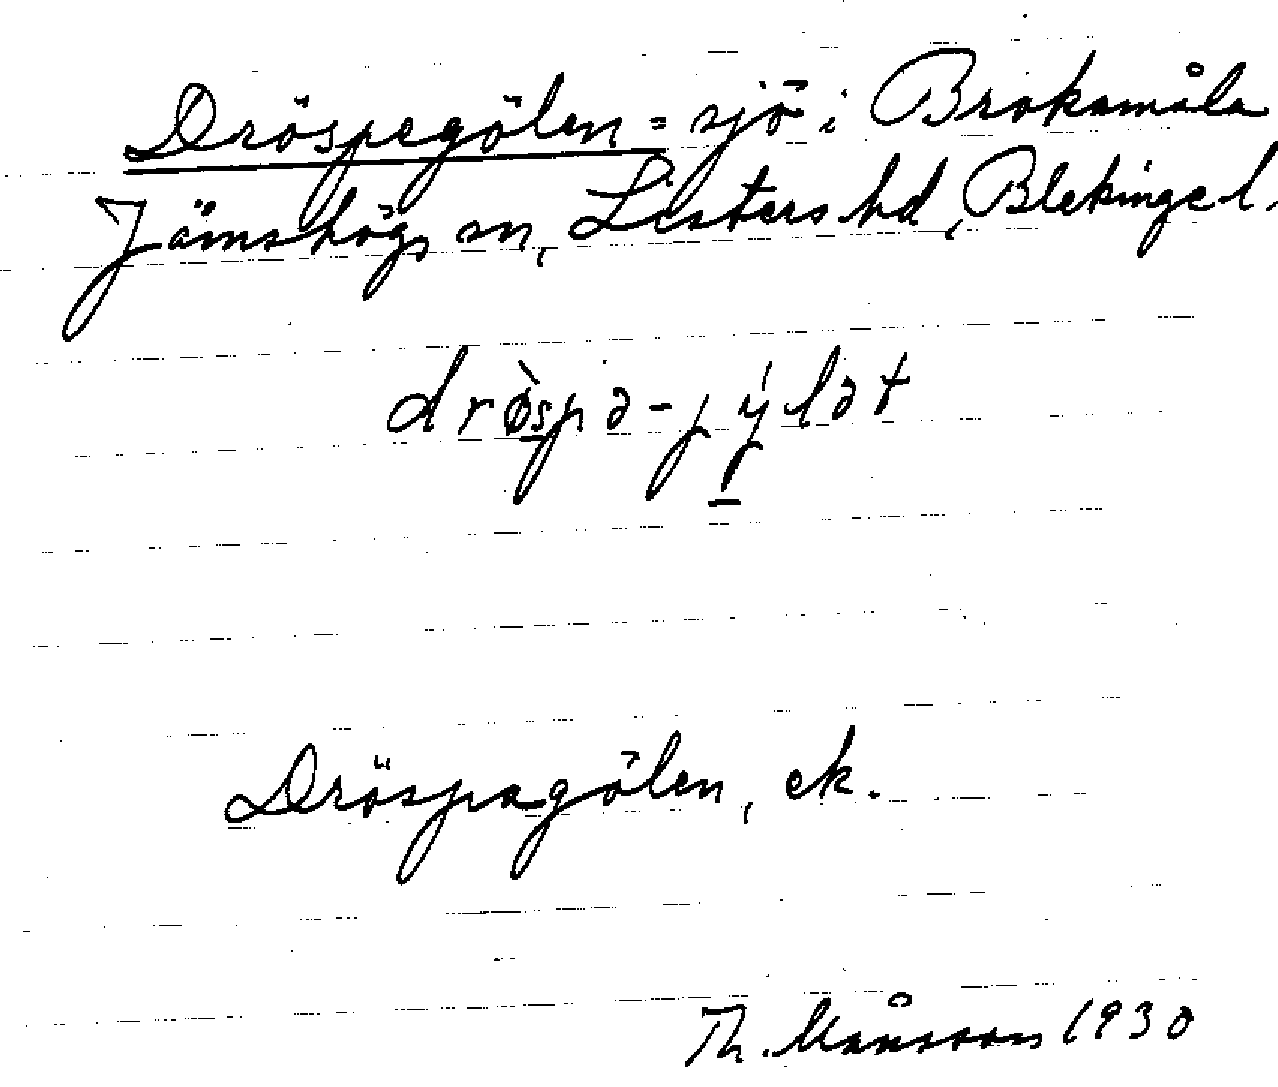 Dröspegölen = sjö i Brokamåla
Jämshögs sn, Listers hd, Blekinge l.
drø̀spə-jýlət
Dröspagölen, ek.
Th. Månsson 1930